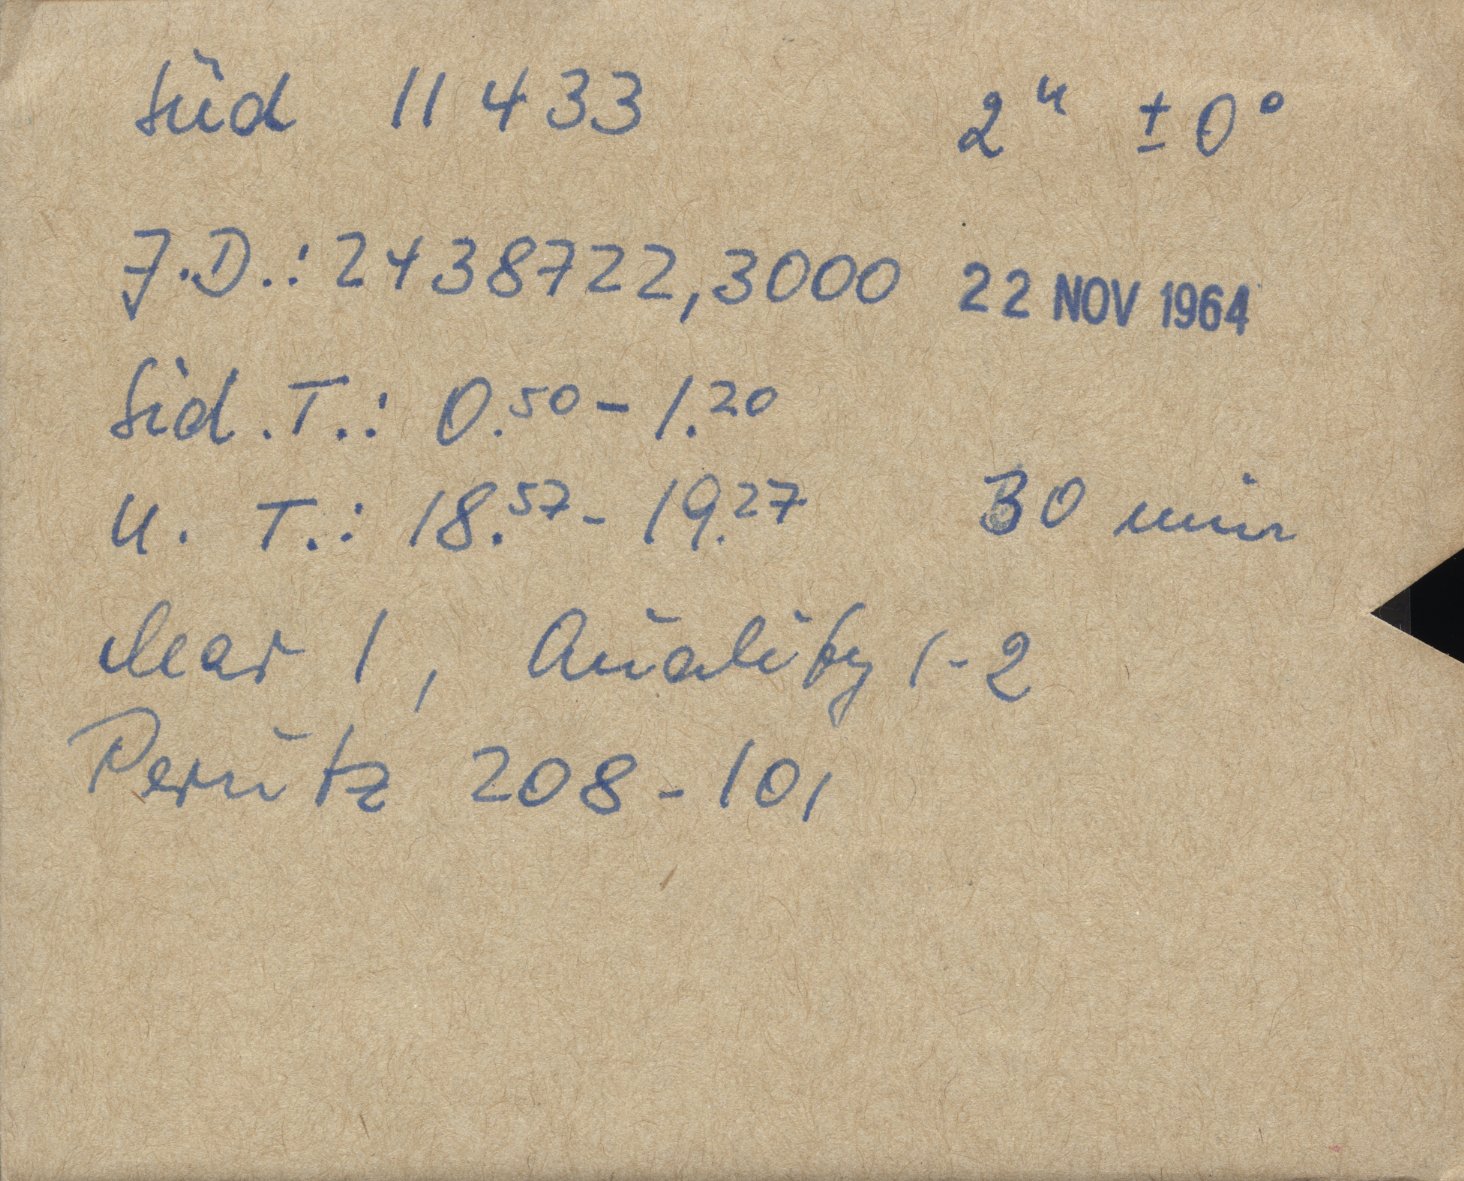 Süd 11433 2ʰ ±0°
J.D.: 2438722,3000 22 NOV 1964
Sid. T.: 0.50 - 1.20
U. T.: 18.57 - 19.27 30 min
clear 1, Quality 1-2
Perutz 208-101